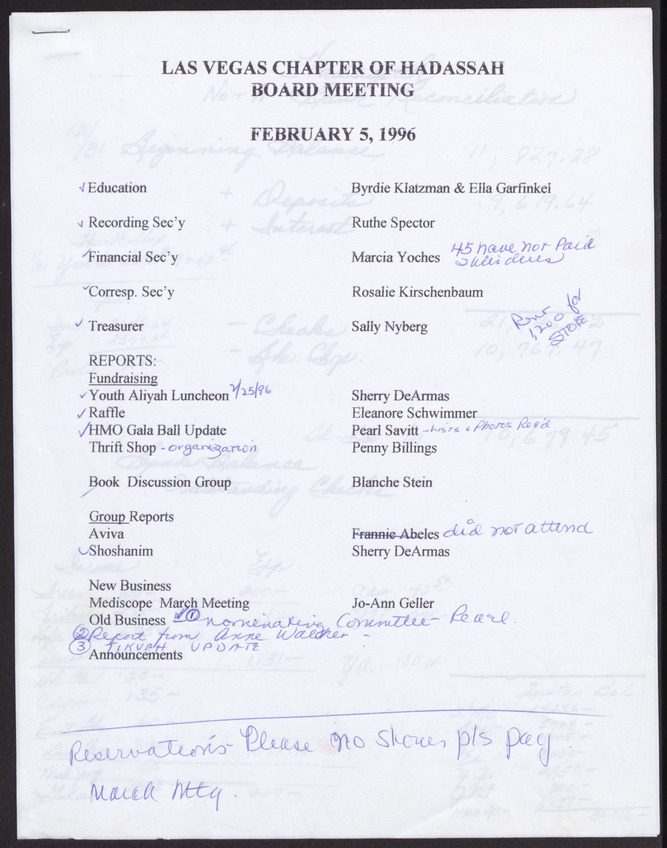 LAS VEGAS CHAPTER OF HADASSAH
BOARD MEETING
FEBRUARY 5, 1996
✓ Education Byrdie Klatzman & Ella Garfinkel
✓ Recording Sec'y Ruthe Spector
✓ Financial Sec'y Marcia Yoches 45 have not Paid
✓ Corresp. Sec'y Rosalie Kirschenbaum
✓ Treasurer Sally Nyberg Rent 1200 for STORE
REPORTS:
Fundraising
✓ Youth Aliyah Luncheon 2/25/96 Sherry DeArmas
✓ Raffle Eleanore Schwimmer
✓ HMO Gala Ball Update Pearl Savitt - Lists + Photos Rec'd
Thrift Shop - organization Penny Billings
Book Discussion Group Blanche Stein
Group Reports
Aviva Frannie Abeles did not attend
✓ Shoshanim Sherry DeArmas
New Business
Mediscope March Meeting Jo-Ann Geller
Old Business ✓ ① nominating Committee - Pearl.
② Report from Anne Walcher -
③ TIKVAH UPDATE
Announcements
Reservations - Please no shows pls pay
March Mtg.